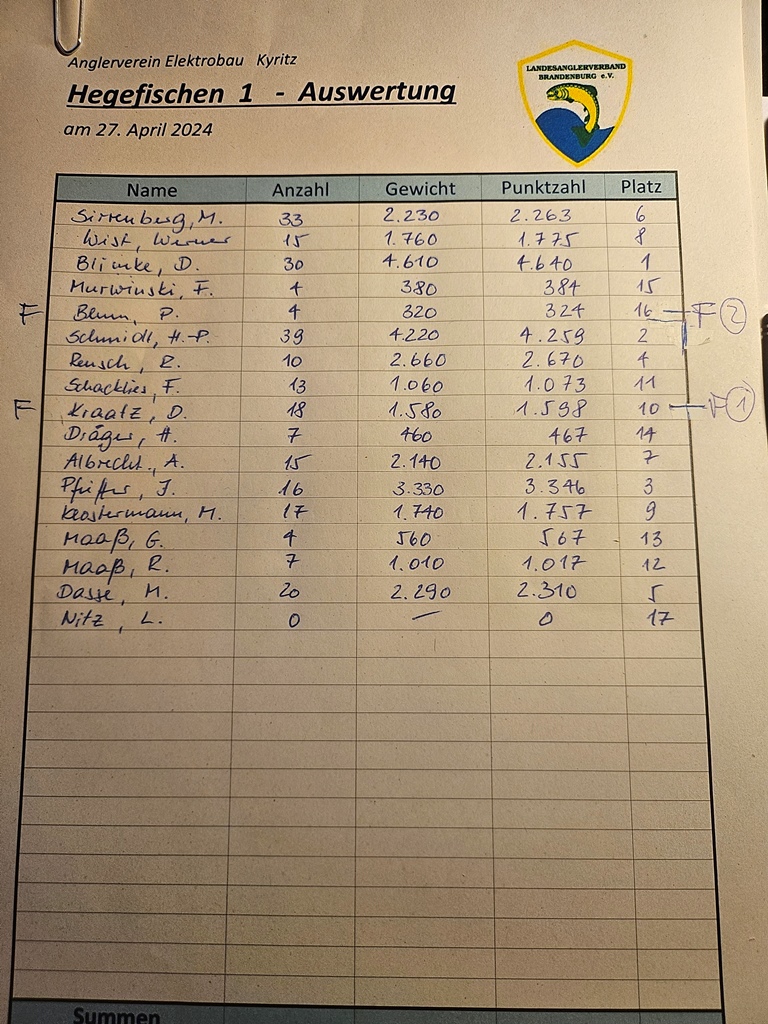 Anglerverein Elektrobau Kyritz
Hegefischen 1 - Auswertung
am 27. April 2024
LANDESANGLERVERBAND
BRANDENBURG e.V.
Name Anzahl Gewicht Punktzahl Platz
Sirrenberg, M. 33 2.230 2.263 6
Wist, Werner 15 1.760 1.775 8
Blimke, D. 30 4.610 4.640 1
Murwinski, F. 4 380 384 15
F Blum, P. 4 320 324 16 F 2
Schmidt, H.-P. 39 4.220 4.259 2
Rensch, R. 10 2.660 2.670 4
Schacklies, F. 13 1.060 1.073 11
F Kraatz, D. 18 1.580 1.598 10 F 1
Dräger, H. 7 460 467 14
Albrecht, A. 15 2.140 2.155 7
Pfeiffer, J. 16 3.330 3.346 3
Klostermann, M. 17 1.740 1.757 9
Maaß, G. 4 560 567 13
Maaß, R. 7 1.010 1.017 12
Dasse, M. 20 2.290 2.310 5
Nitz, L. 0 — 0 17
Summen